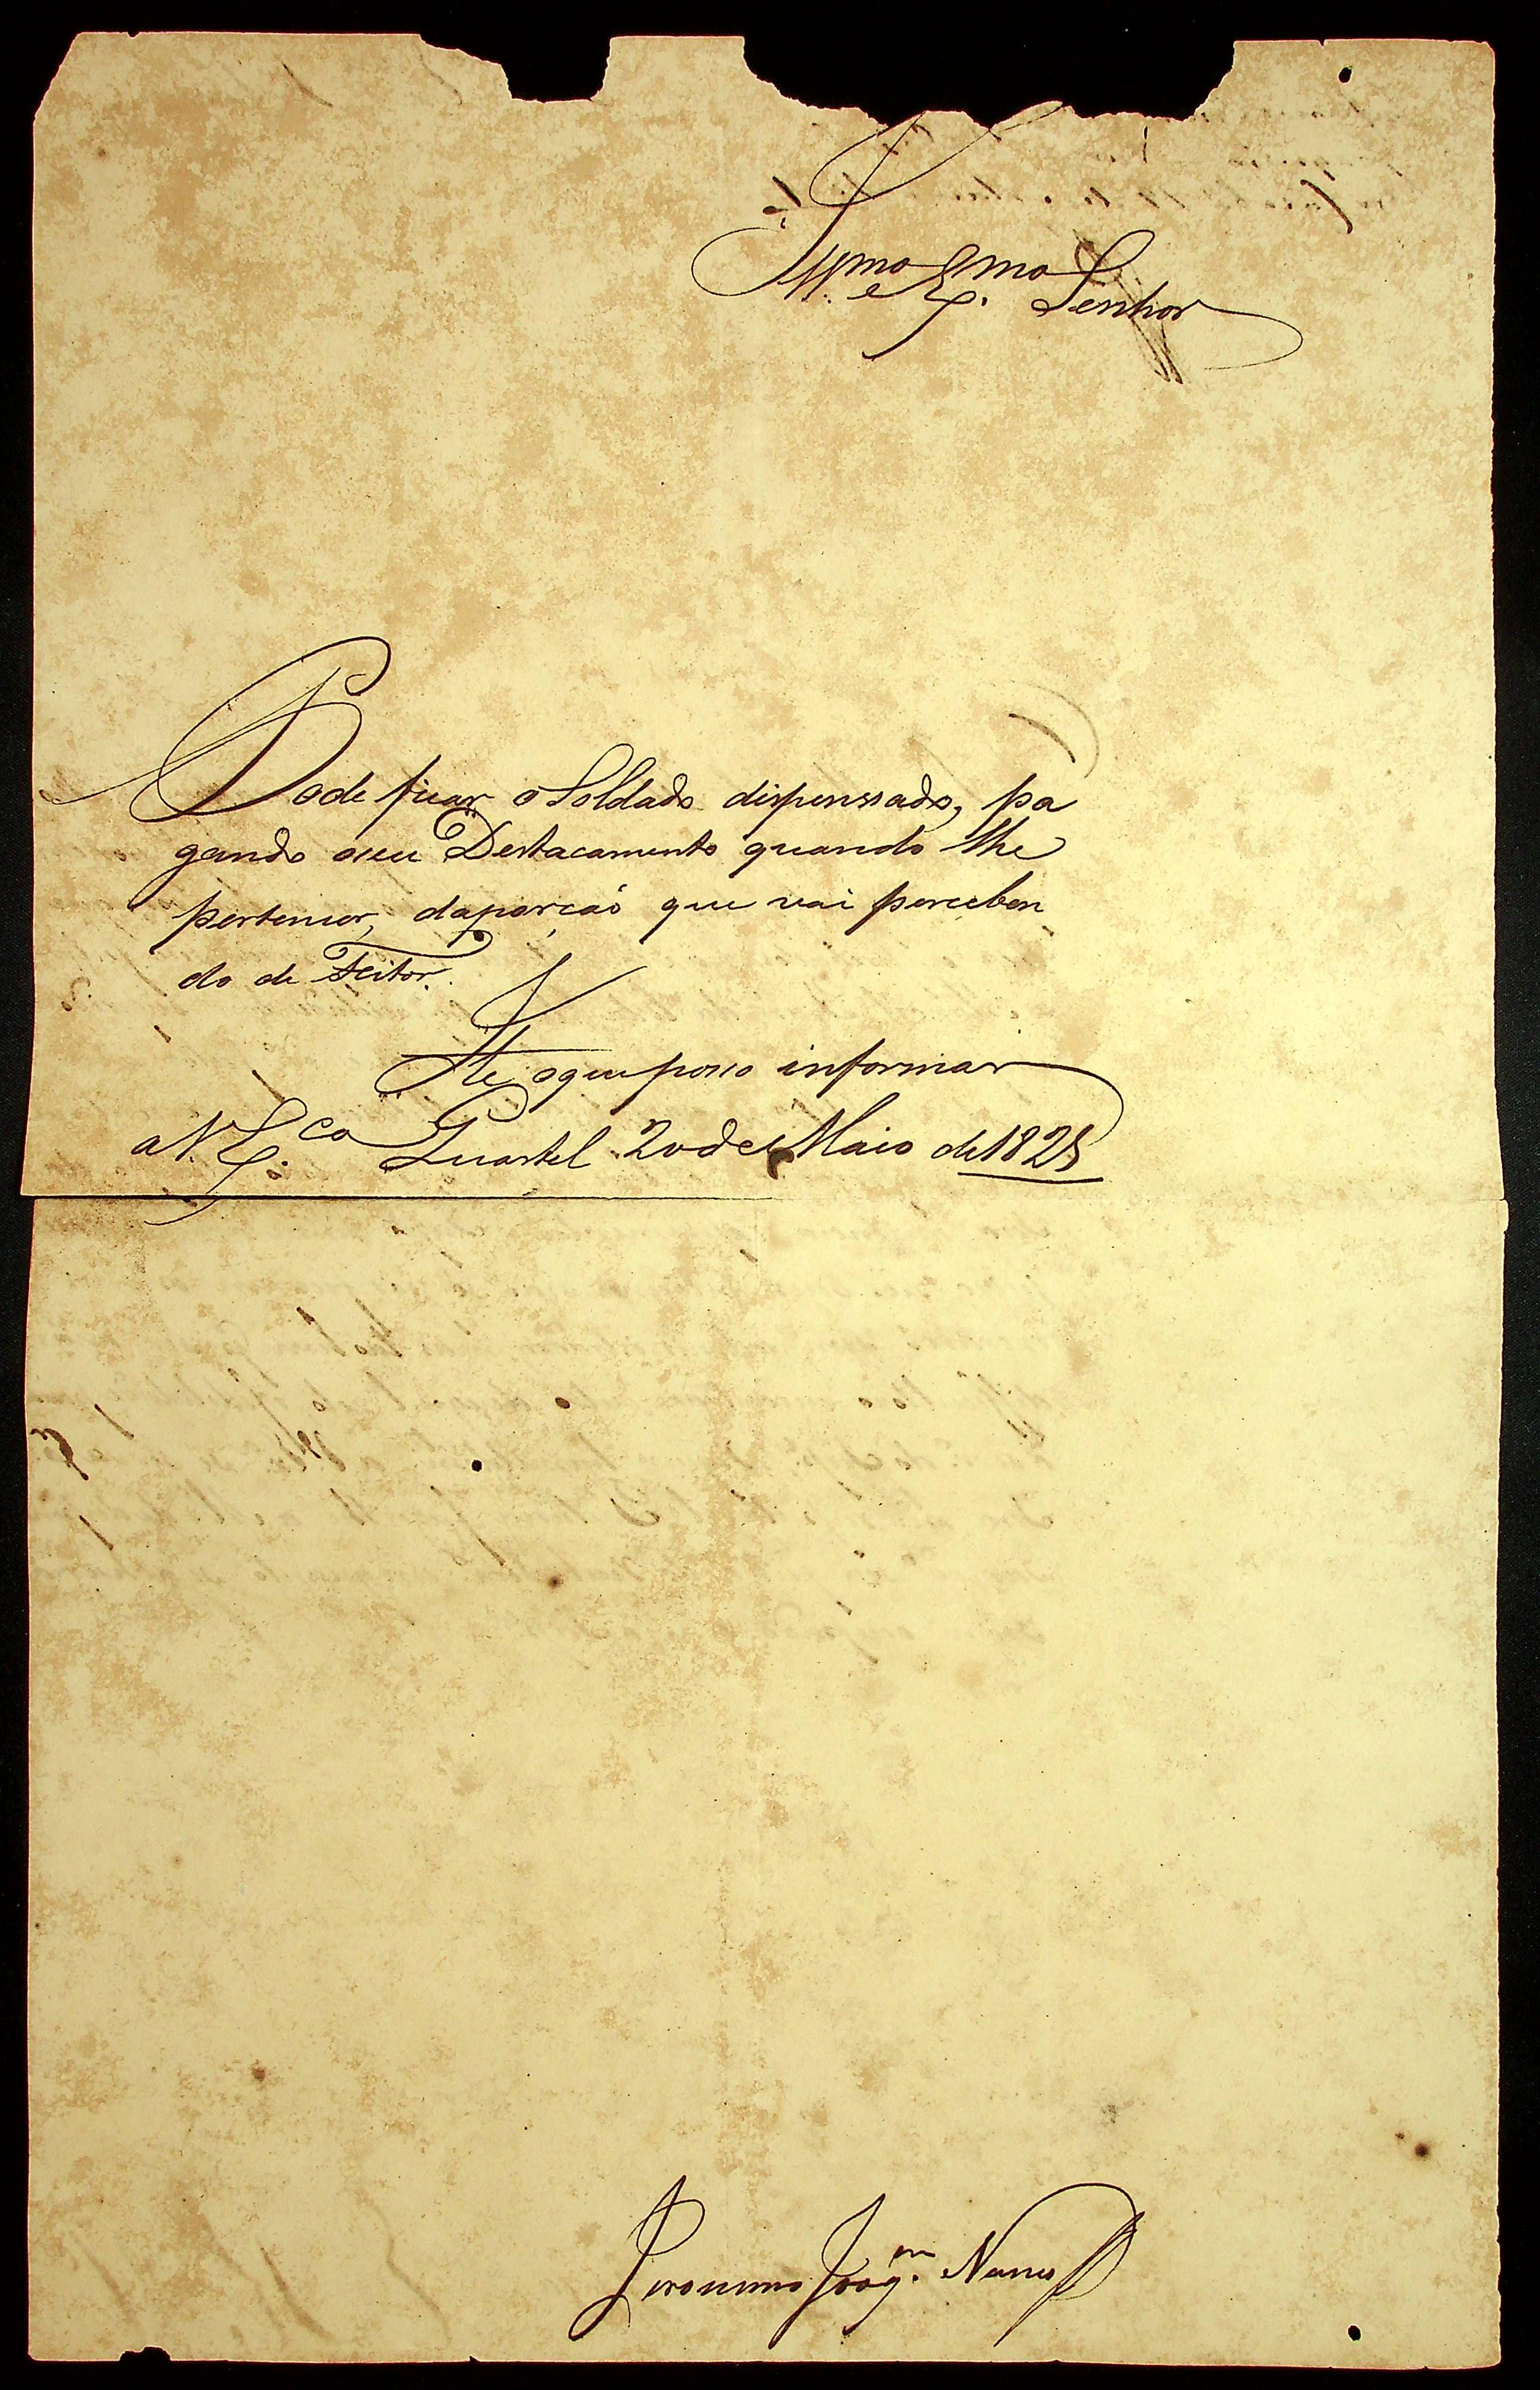 Illmo e Exmo Senhor
Pode ficar o Soldado dispenssado, pa
gando oseu Destacamento quando lhe
pertencer, daporcaó que vai perceben
do de Feitor.
He oque posso informar
a V. Exca Quartel 20 de Maio de 1825
Jeronimo Joaqm Nunes